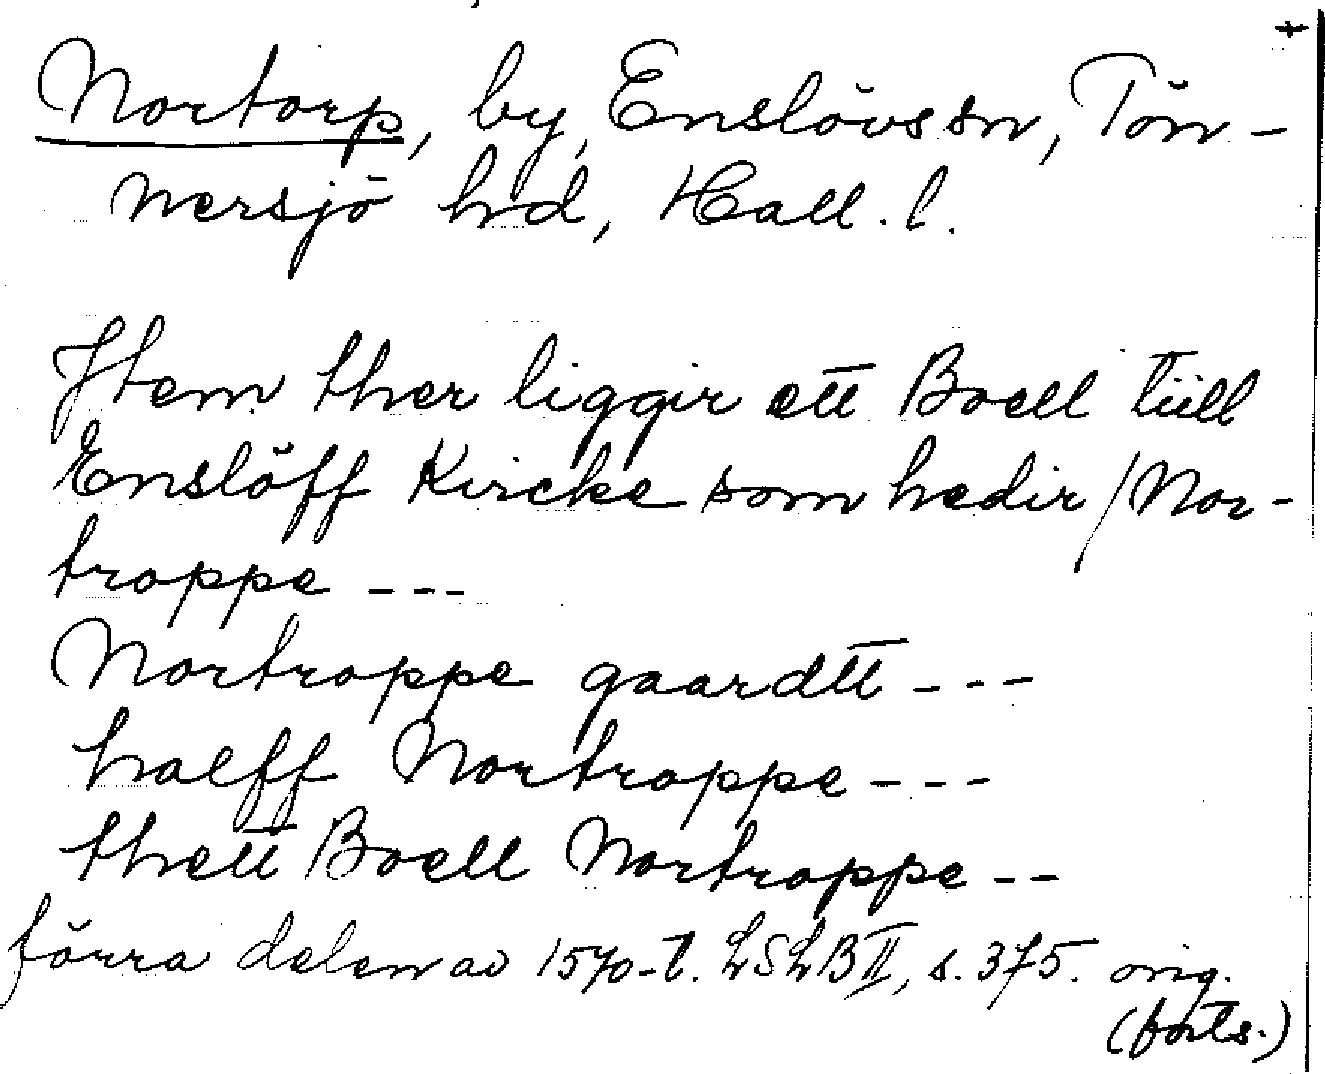 Nortorp, by, Enslövs sn, Tön-
nersjö hd, Hall. l.
Jtem ther liggir ett Boell tiill
Enslöff Kircke som hedir / Nor-
troppe ---
Nortroppe gaardtt ---
halff Nortroppe ---
thett Boell Nortroppe --
förra delen av 1570-t. LSLB II, s. 375. orig.
(forts.)